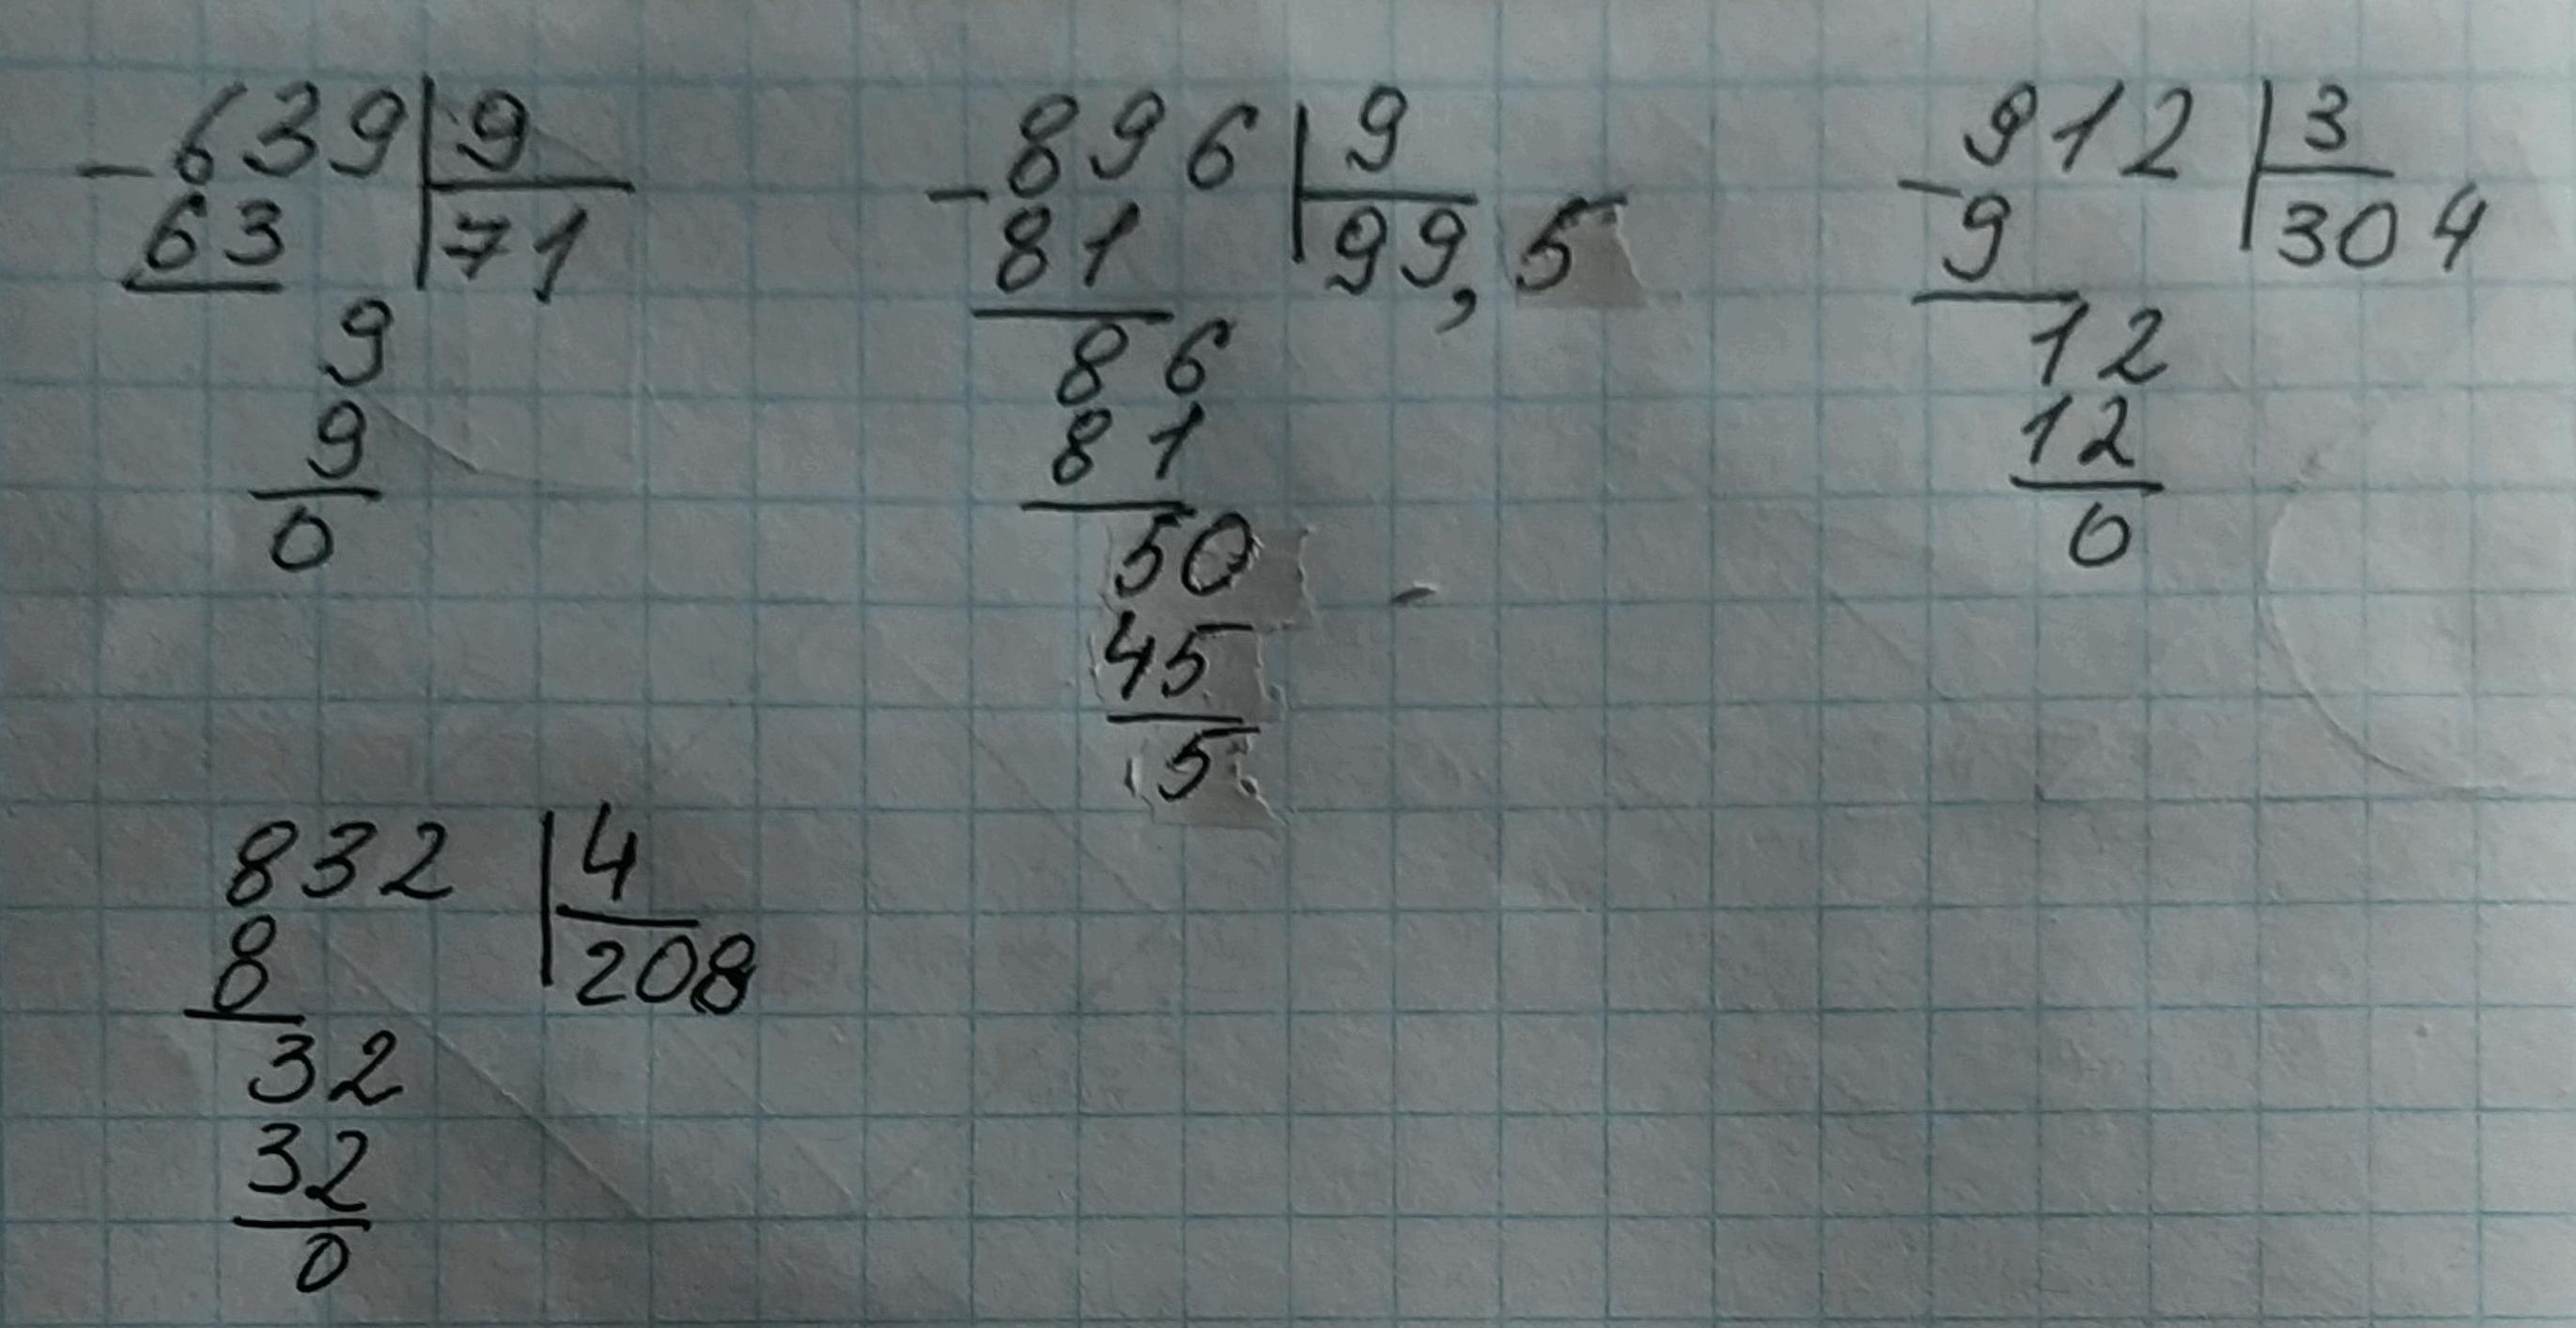 -639|9
63 |71
9
9
0
-896|9
81 |99,5
86
81
50
45
5
-912|3
9 |304
12
12
0
832|4
8 |208
32
32
0